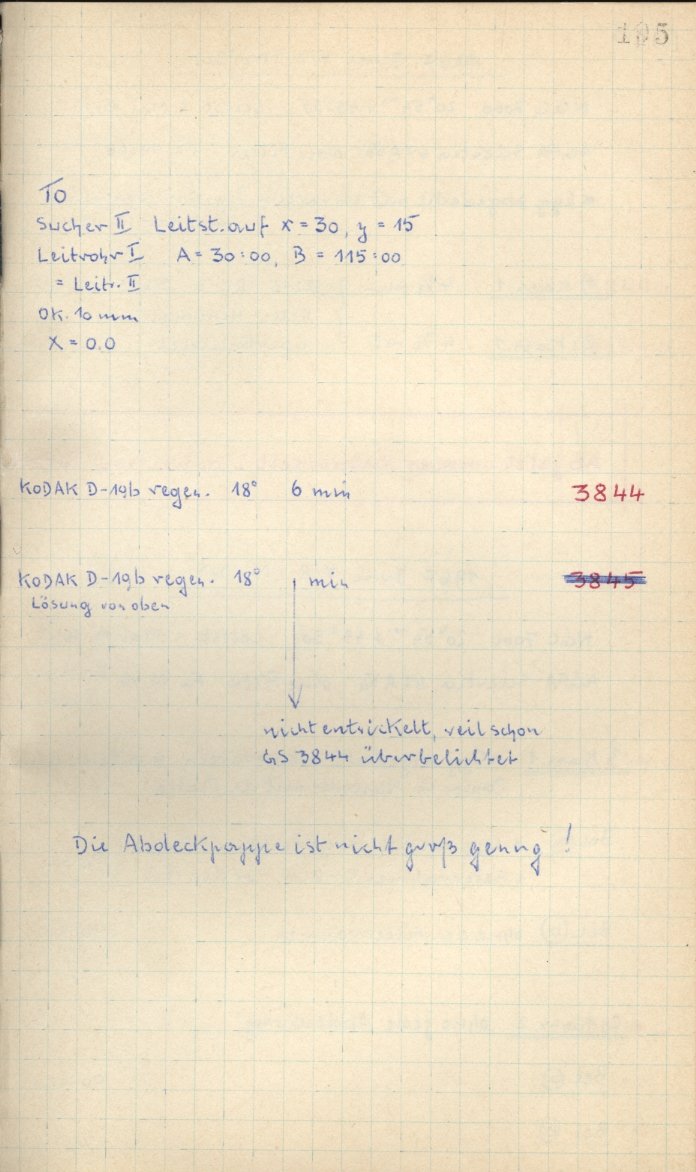 195
TO
Sucher II Leitst. auf x = 30, y = 15
Leitrohr I A = 30:00, B = 115:00
= Leitr. II
Ok. 10 mm
X = 0.0
KODAK D-19b regen. 18° 6 min 3844
KODAK D-19b regen. 18° , min 3845
Lösung von oben
nicht entwickelt, weil schon
GS 3844 überbelichtet
Die Abdeckpappe ist nicht groß genug!